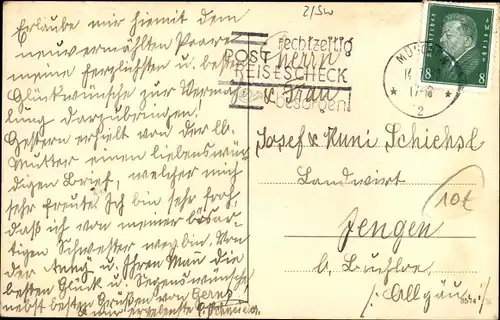 Erlaube mir hiemit dem
neuvermählten Paare
meine herzlichsten u. besten
Glückwünsche zur Vermäh-
lung darzubringen!
Gestern erhielt von der lb.
Mutter einen liebenswür-
digen Brief, welcher mich
sehr freute! Ich bin sehr froh,
daß ich von meiner bösar-
tigen Schwester weg bin. Von
der u. Ihrem Mann die
besten Glück u. Segenswünsche
nebst besten Grüßen von
2/5w
rechtzeitig
POST
REISESCHECK
besorgen!
MÜNCHEN
17-18
2
Deutsches Reich
8 8
Herrn
u. Frau
Josef u. Kuni Schiessl
Landwirt
Jengen
b. Buchloe
/: Allgäu :/
10t